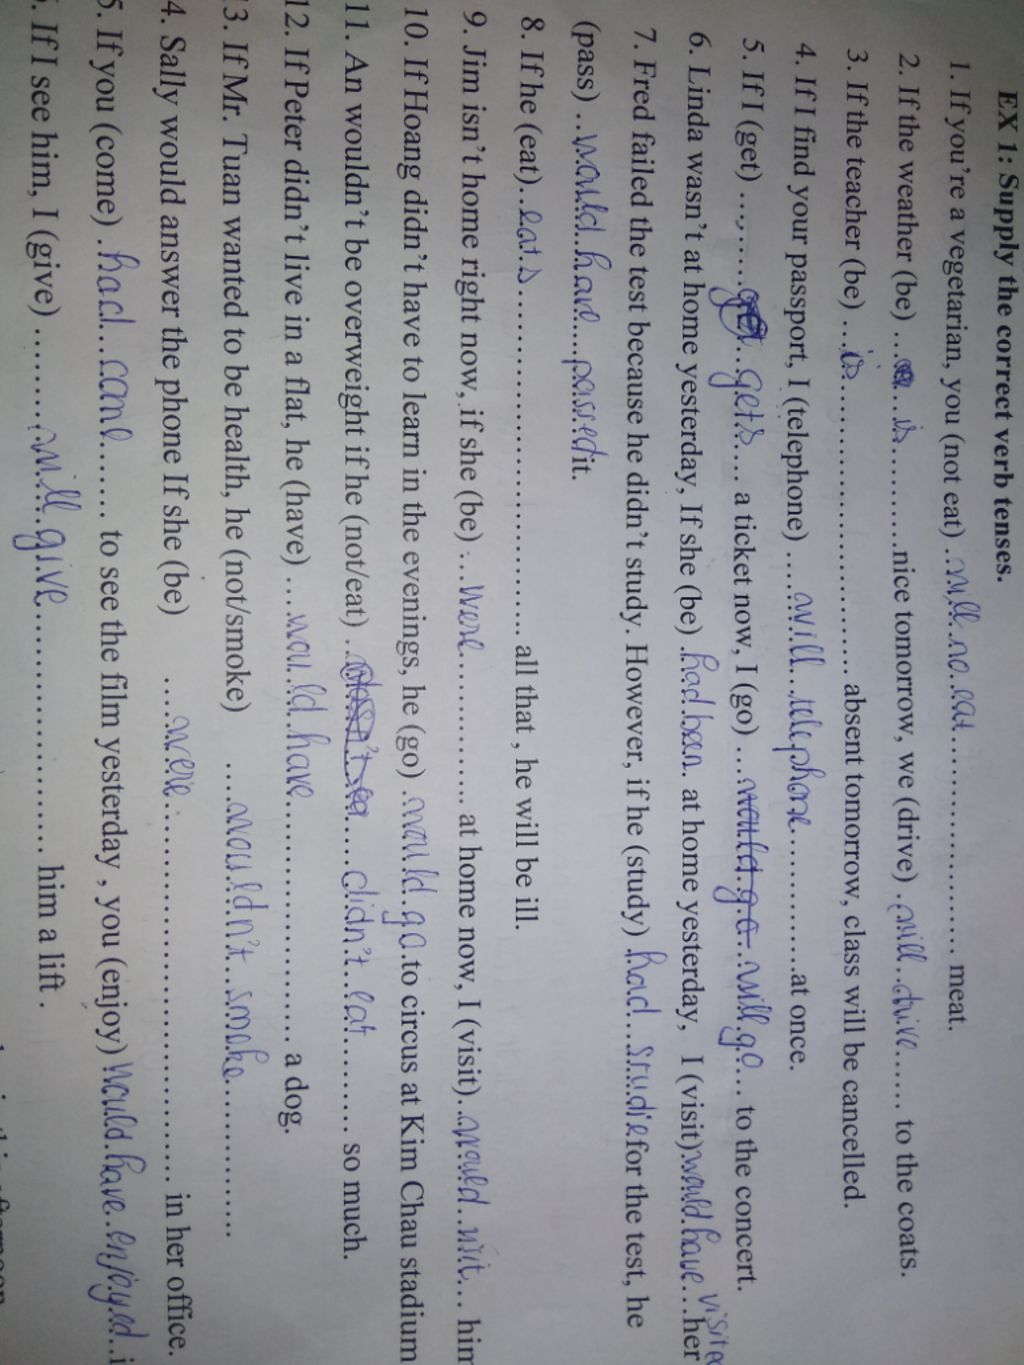 EX 1: Supply the correct verb tenses.
1. If you're a vegetarian, you (not eat) .will no eat............ meat.
2. If the weather (be) ...is..........nice tomorrow, we (drive) .will..drive...... to the coats.
3. If the teacher (be) ...is............................ absent tomorrow, class will be cancelled.
4. If I find your passport, I (telephone) ....will...telephone.............at once.
5. If I (get) ...gets.... a ticket now, I (go) ...would go..will go... to the concert.
6. Linda wasn't at home yesterday, If she (be) .had been. at home yesterday, I (visit)would have visited...her
7. Fred failed the test because he didn't study. However, if he (study) .had...studie for the test, he
(pass) ..would..have....passed it.
8. If he (eat)..eats............................ all that , he will be ill.
9. Jim isn't home right now, if she (be) ...were............ at home now, I (visit)..would..visit... him
10. If Hoang didn't have to learn in the evenings, he (go) .would.go.to circus at Kim Chau stadium
11. An wouldn't be overweight if he (not/eat) ......didn't..eat........ so much.
12. If Peter didn't live in a flat, he (have) ...would.have.................... a dog.
13. If Mr. Tuan wanted to be health, he (not/smoke) ....wouldn't..smoke............
4. Sally would answer the phone If she (be) ....were............................ in her office.
5. If you (come) .had...came...... to see the film yesterday , you (enjoy) would.have.enjoyed..i
. If I see him, I (give) ..........will.give.................... him a lift .